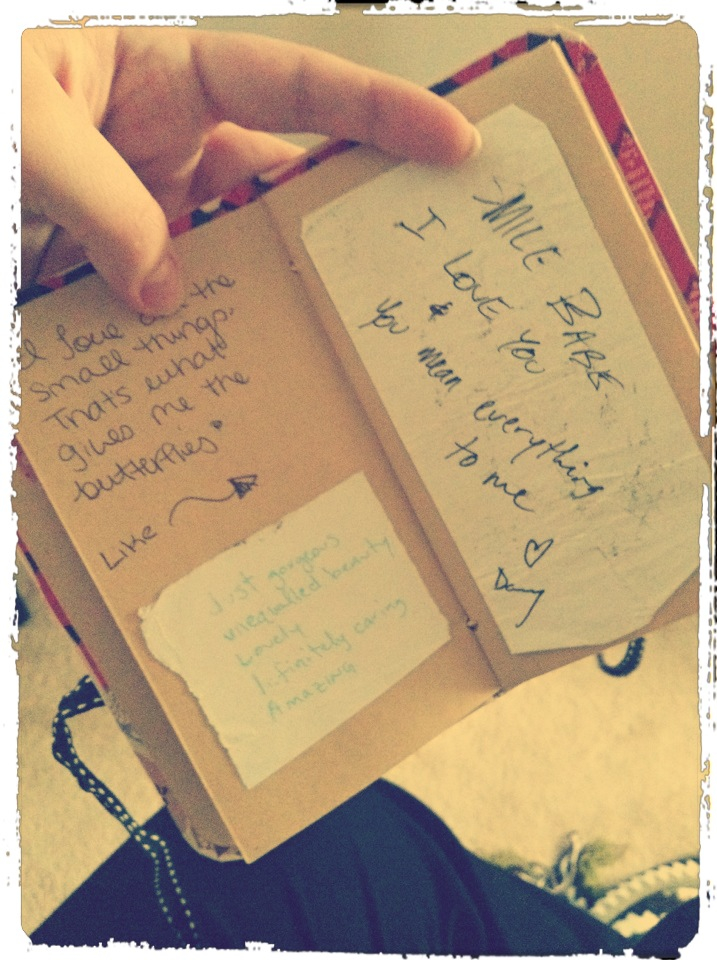 I love all the
small things.
That's what
gives me the
butterflies
Like
Just gorgeous
unequalled beauty
Lovely
Infinitely caring
Amazing
SMILE BABE
I LOVE YOU
&
You mean everything
to me
♡
Danny